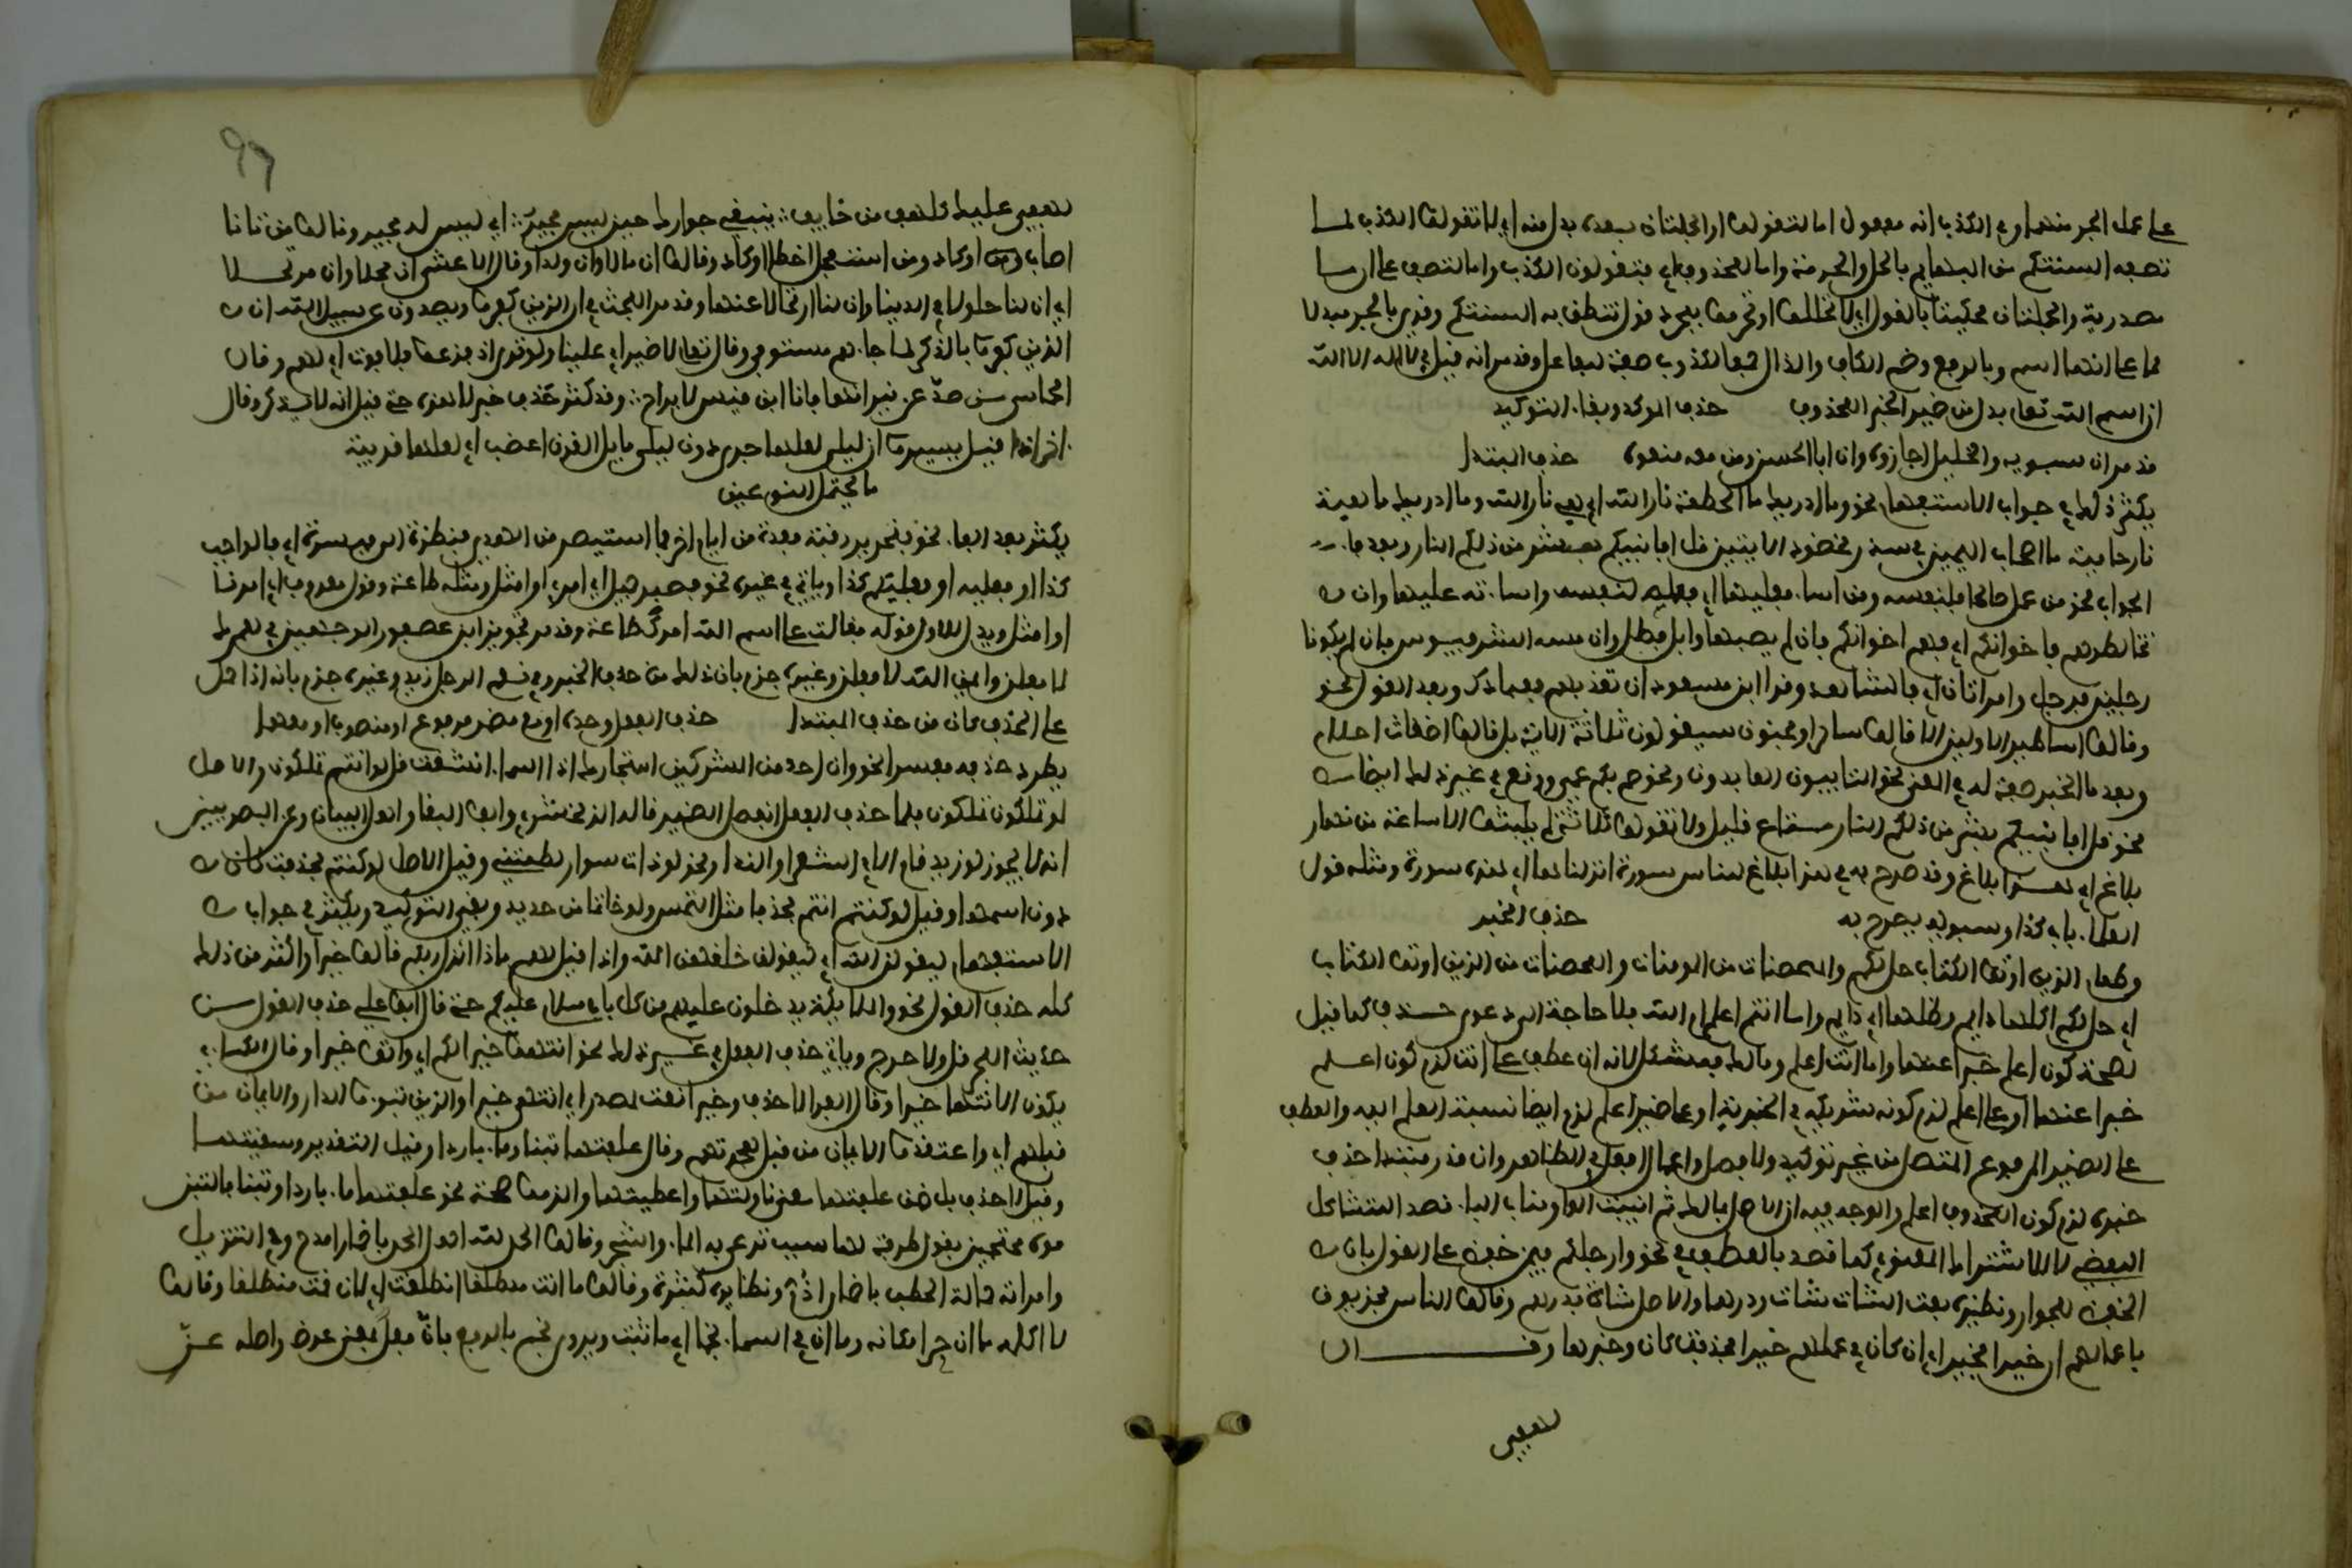 على محل الجر منهما وفي الكذب انه مفعول اما لتقولوا والجملتان بعده بدل منه اي لا تقولوا الكذب لما
تصفه السنتكم من البهايم بالحل والحرمة واما لمحذوف اي فتقولون الكذب واما لتصف على ان ما
مصدرية والجملتان محكيتا بالقول اي لا تحللوا وتحرموا بمجرد قول تنطق به السنتكم وقرئ بالجر بدلا
مما على انها اسم وبالرفع وضم الكاف والذال جمعا لكذوب صفة للفاعل وقد مر انه قيل في لا اله الا الله
ان اسم الله تعالى بدل من ضمير الخبر المحذوف حذف الموكد وبقاء التوكيد
قد مر ان سيبويه والخليل اجازوه وان ابا الحسن ومن معه منعوه حذف المبتدا
يكثر ذلك في جواب الاستفهام نحو وما ادريك ما الحطمة نار الله اي هي نار الله وما ادريك ماهية
نار حامية ما اصحاب اليمين في سدر مخضود الايتين قل افانبيكم بشر من ذلكم النار وبعد فاء
الجواب نحو من عمل صالحا فلنفسه ومن اساء فعليها اي فعمله لنفسه واساءته عليها وان
تخالطوهم فاخوانكم اي فهم اخوانكم فان لم يصبها وابل فطل وان مسه الشر فييوس فان لم يكونا
رجلين فرجل وامراتان اي فالشاهد وقرا ابن مسعود ان تعذبهم فعبادك وبعد القول نحو
وقالوا اساطير الاولين الا قالوا ساحر او مجنون سيقولون ثلاثة الاية بل قالوا اضغاث احلام
وبعد ما الخبر صفة له في المعنى نحو التايبون العابدون ونحو صم بكم عمي ووقع في غير ذلك ايضا
نحو قل افانبيكم بشر من ذلكم النار متاع قليل ولا تقولوا ثلاثة لم يلبثوا الا ساعة من نهار
بلاغ اي هذا بلاغ وقد صرح به في هذا بلاغ للناس سورة انزلناها اي هذه سورة ومثله قول
العلماء باب كذا وسيبويه يصرح به حذف الخبر
وطعام الذين اوتوا الكتاب حل لكم والمحصنات من المومنات والمحصنات من الذين اوتوا الكتاب
اي حل لكم اكلها دايم وظلها اي دايم واما انتم اعلم ام الله فلا حاجة الى دعوى حذف كما قيل
لصحة كون اعلم خبرا عنهما واما انت اعلم ومالك فمشكل لانه ان عطف على انت لزم كون اعلم
خبرا عنهما او على اعلم لزم كونه شريكه في الخبرية او على ضمير اعلم لزم ايضا نسبة العلم اليه والعطف
على الضمير المرفوع المتصل من غير توكيد ولا فصل واعمال افعل في الظاهر وان قدر مبتدا حذف
خبره لزم كون المحذوف اعلم والوجه فيه ان الاصل بمالك ثم انيبت الواو مناب الباء قصد التشاكل
اللفظي لا للاشتراك المعنوي كما قصد بالعطف في نحو وارجلكم فيمن خفض على القول بان
الخفض للجوار ونظيره بعت الشاء شاة ودرهما والاصل شاة بدرهم وقالوا الناس مجزيون
باعمالهم ان خيرا فخير اي ان كان في عملهم خير فحذفت كان وخبرها وقــــال
لهفي
لهفي عليك للهفة من خايف :: يبغي جوارك حين ليس مجير :: اي ليس له مجير وقالوا من تانا
اصاب او كاد ومن استعجل اخطا او كاد وقالوا ان مالا وان ولدا وقال الاعشى ان محلا وان مرتحلا
اي ان لنا حلولا في الدنيا وان لنا ارتحالا عنها وقد مر البحث في ان الذين كفروا ويصدون عن سبيل الله ان
الذين كفروا بالذكر لما جاءهم مستوفى وقال تعالى لا ضير اي علينا ولو ترى اذ فزعوا فلا فوت اي لهم وقال
الحماسي من صد عن نيرانها فانا ابن قيس لا براح :: وقد كثر حذف خبر لا هذه حتى قيل انه لا يذكر وقال
اخر اذا قيل سيروا ان ليلى لعلها جرى دون ليلى مايل القرن اعضب اي لعلها قريبة
ما يحتمل النوعين
يكثر بعد الفاء نحو فتحرير رقبة فعدة من ايام اخر فما استيسر من الهدي فنظرة الى ميسرة اي فالواجب
كذا او فعليه او فعليكم كذا وياتي في غيره نحو فصبر جميل اي امري او امثل ومثله طاعة وقول معروف اي امرنا
او امثل ويدل للاول قوله فقالت على اسم الله امرك طاعة وقد مر تجويز ابن عصفور الوجهين في لعمرك
لافعلن وايمن الله لافعلن وغيره جزم بان ذلك من حذف الخبر وفي نعم الرجل زيد وغيره جزم بانه اذا حمل
على الحذف كان من حذف المبتدا حذف الفعل وحده او مع مضمر مرفوع او منصوب او معهما
يطرد حذفه مفسرا نحو وان احد من المشركين استجارك اذا السماء انشقت قل لو انتم تملكون والاصل
لو تملكون تملكون فلما حذف الفعل انفصل الضمير قاله الزمخشري وابو البقاء واهل البيان وعن البصريين
انه لا يجوز لو زيد قام الا في الشعر او الندور نحو لو ذات سوار لطمتني وقيل الاصل لو كنتم فحذفت كان
دون اسمها وقيل لو كنتم انتم فحذفا مثل التمس ولو خاتما من حديد وبقي التوكيد ويكثر في جواب
الاستفهام ليقولن الله اي ليقولن خلقهن الله واذا قيل لهم ماذا انزل ربكم قالوا خيرا واكثر من ذلك
كله حذف القول نحو والملايكة يدخلون عليهم من كل باب سلام عليكم حتى قال ابو علي حذف القول من
حديث البحر قل ولا حرج وياتي حذف الفعل في غير ذلك نحو انتهوا خيرا لكم اي واتوا خيرا وقال الكسائي
يكون الانتهاء خيرا وقال الفراء لا حذف وخيرا نعت لمصدر اي انتهاء خيرا والذين تبوءوا الدار والايمان من
قبلهم اي واعتقدوا الايمان من قبل هجرتهم وقال علفتها تبنا وماء باردا وقيل التقدير وسقيتها
وقيل لا حذف بل ضمن علفتها معنى ناولتها واعطيتها والزموا صحة نحو علفتها ماء باردا وتبنا فالتزموه
محتجين بقول طرفة لها سبب ترعى به الماء والشجر وقالوا الحمد لله اهل الحمد باضمار امدح وفي التنزيل
وامراته حمالة الحطب باضمار اذم ونظايره كثيرة وقالوا اما انت منطلقا انطلقت اي لان كنت منطلقا وقالوا
لا اكلمه ما ان حرا مكانه وما ان في السماء نجما اي ما ثبت ويروى نجم بالرفع فان فعل بمعنى عرض واصله عن